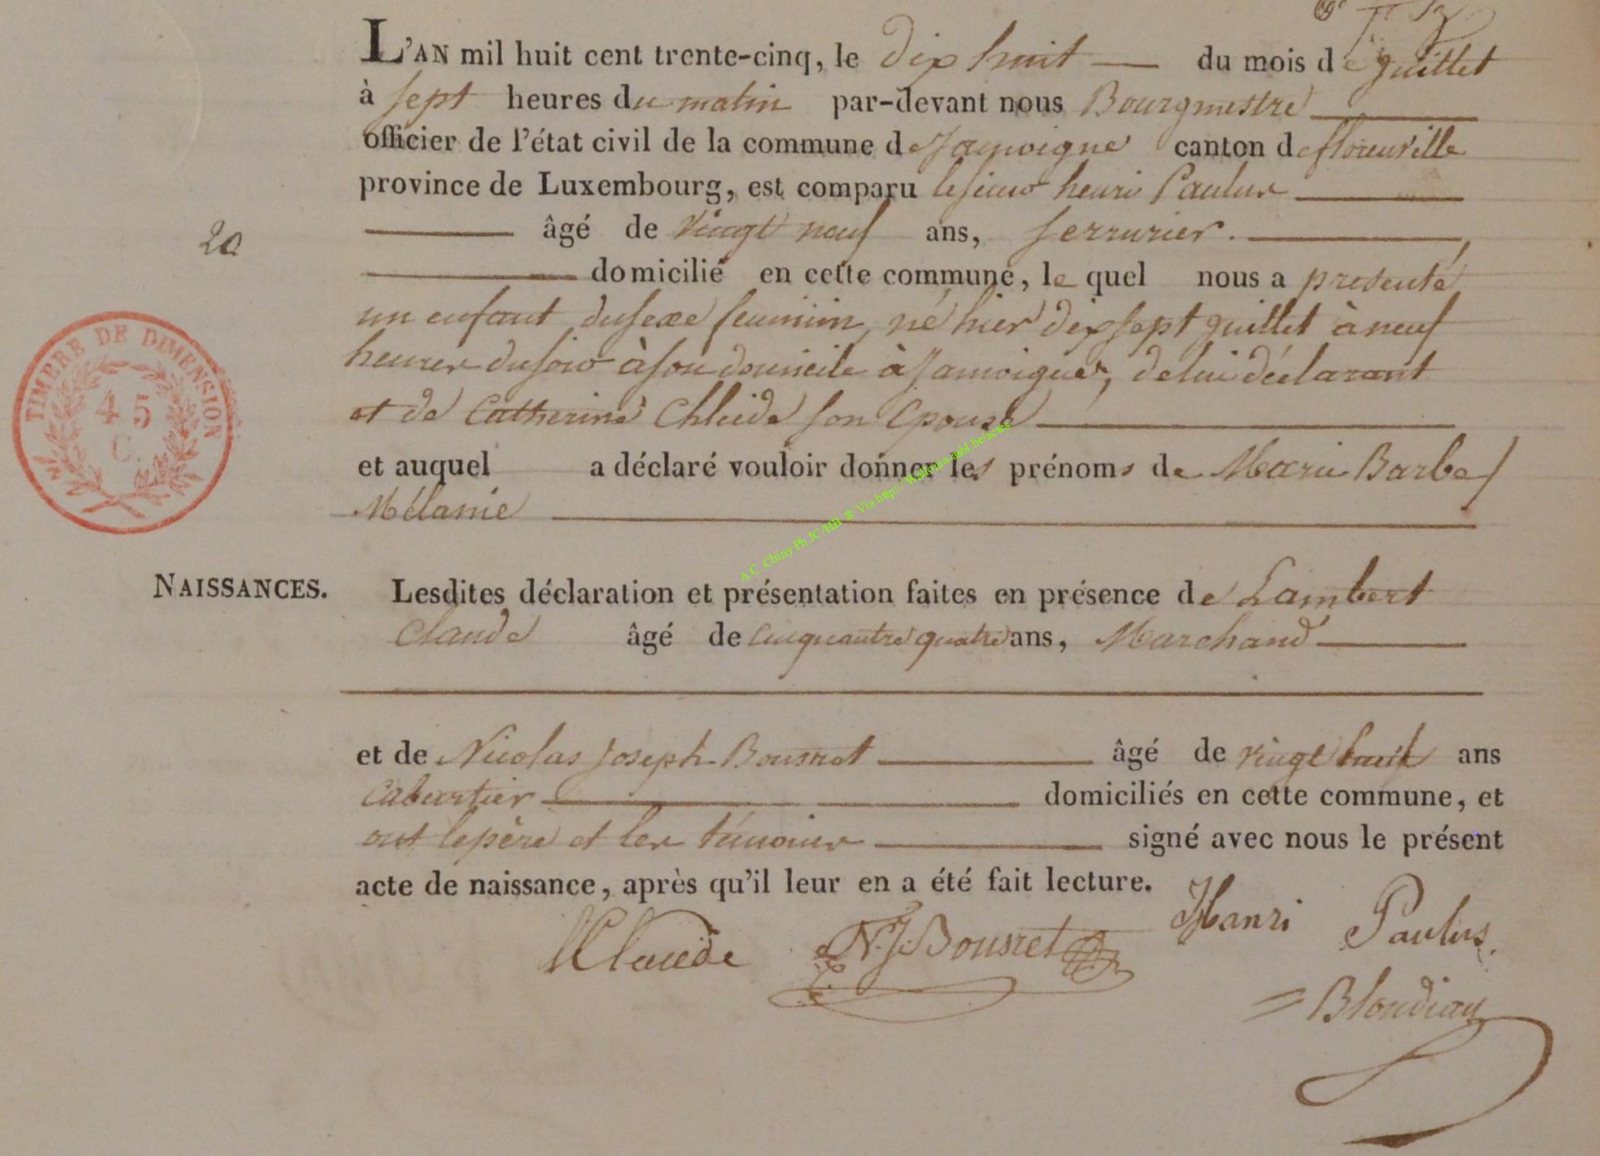 L'AN mil huit cent trente-cinq, le dix huit du mois de juillet
à sept heures du matin par-devant nous Bourgmestre
officier de l'état civil de la commune de Jamoigne canton de florenville
province de Luxembourg, est comparu le sieur henri Paulus
20
âgé de vingt neuf ans, serrurier.
domicilié en cette commune, le quel nous a presenté
un enfant du sexe feminin, né hier dix sept juillet à neuf
heures du soir à son domicile à Jamoigne, de lui déclarant
et de Catherine Chleide son epouse
et auquel a déclaré vouloir donner les prénoms de Marie Barbe
Mélanie
TIMBRE DE DIMENSION
45
C.
A.C. Chiny Ph JC HD
NAISSANCES.
Lesdites déclaration et présentation faites en présence de Lambert
Claude âgé de Cinquantre quatre ans, Marchand
et de Nicolas Joseph Bousret âgé de vingt huit ans
Cabartier domiciliés en cette commune, et
ont le père et les témoins signé avec nous le présent
acte de naissance, après qu'il leur en a été fait lecture.
Claude N.J. Bousret Hanri Paulus.
Blondiau